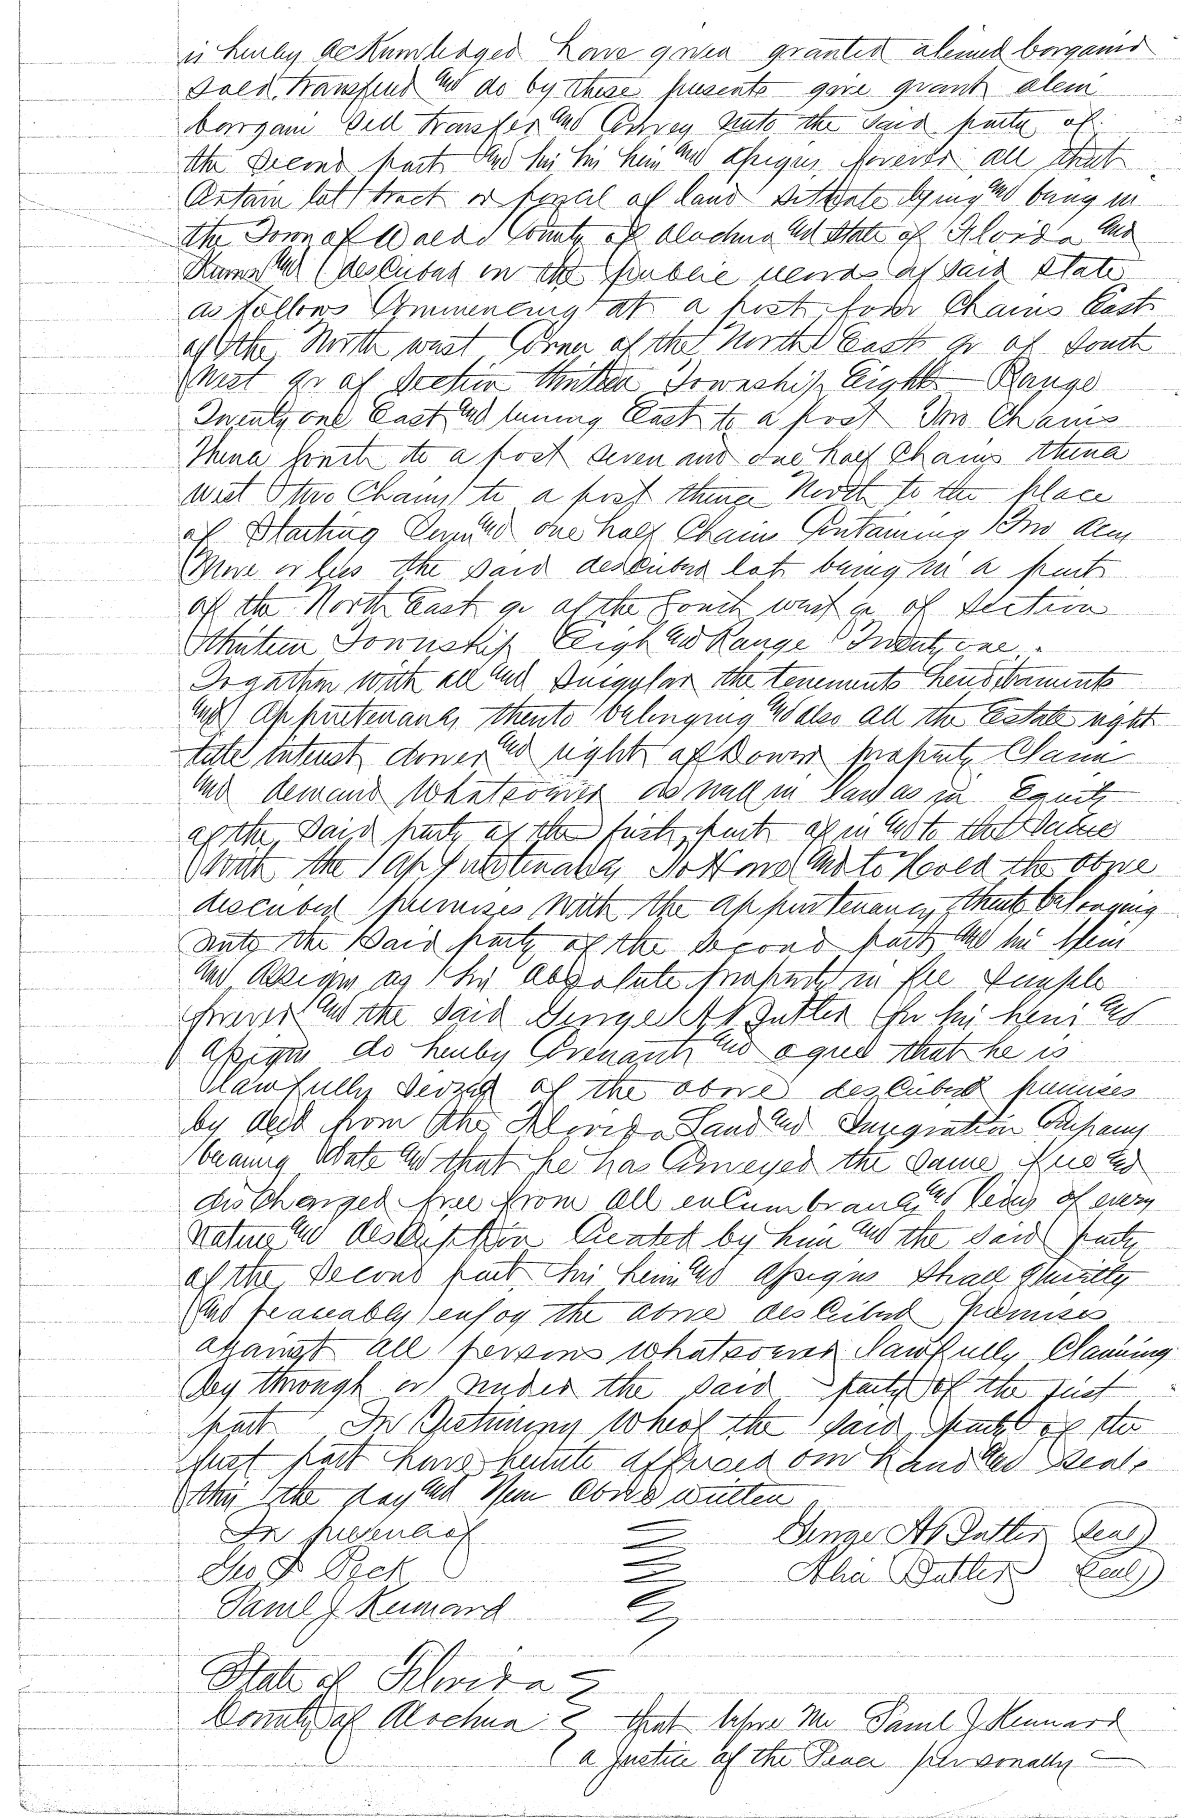 is hereby acknowledged have given granted aliened bargained
sold, transfered and do by these presents give grant alein
bargain sell transfer and Convey unto the said party of
the second part and his his heirs and assigns forever all that
Certain lot tract or parcel of land situate lying and being in
the Town of Waldo County of Alachua and State of Florida and
Known and described in the public records of said State
as follows Commencing at a post four Chains East
of the North west Corner of the North East qr of South
West qr of Section thirteen Township Eight Range
Twenty one East and running East to a post Two Chains
Thence South to a post seven and one half Chains thence
West two Chains to a post thence North to the place
of Starting Seven and one half Chains Containing Two Acres
More or less the said described lot being in a part
of the North East qr of the South west qr of Section
thirteen Township Eight and Range Twenty one.
Together with all and singular the tenements hereditaments
and appurtenances thereto belonging and also all the Estate right
title interest dower and right of Dower property Claim
and demand Whatsoever as well in Law as in Equity
of the said party of the first part of in and to the same
With the appurtenances To Have and to Hold the above
described premises with the appurtenances thereto belonging
unto the said party of the second part and his Heirs
and Assigns as his absolute property in fee simple
forever and the said George W Butler for his heirs and
assigns do hereby Covenant and agree that he is
lawfully seized of the above described premises
by deed from the Florida Land and Immigration Company
bearing date and that he has Conveyed the same free and
discharged free from all encumbrances and liens of every
Nature and description Created by him and the said party
of the second part his heirs and assigns shall quietly
and peaceably enjoy the above described premises
against all persons whatsoever lawfully Claiming
by through or under the said party of the first
part In Testimony Whereof the said party of the
first part have hereunto affixed our hand and seals
this the day and Year above written
In presence of George W Butler (Seal)
Geo J Peck Alice Butler (Seal)
Saml J Kennard
State of Florida
County of Alachua that before Me Saml J Kennard
a Justice of the Peace personally